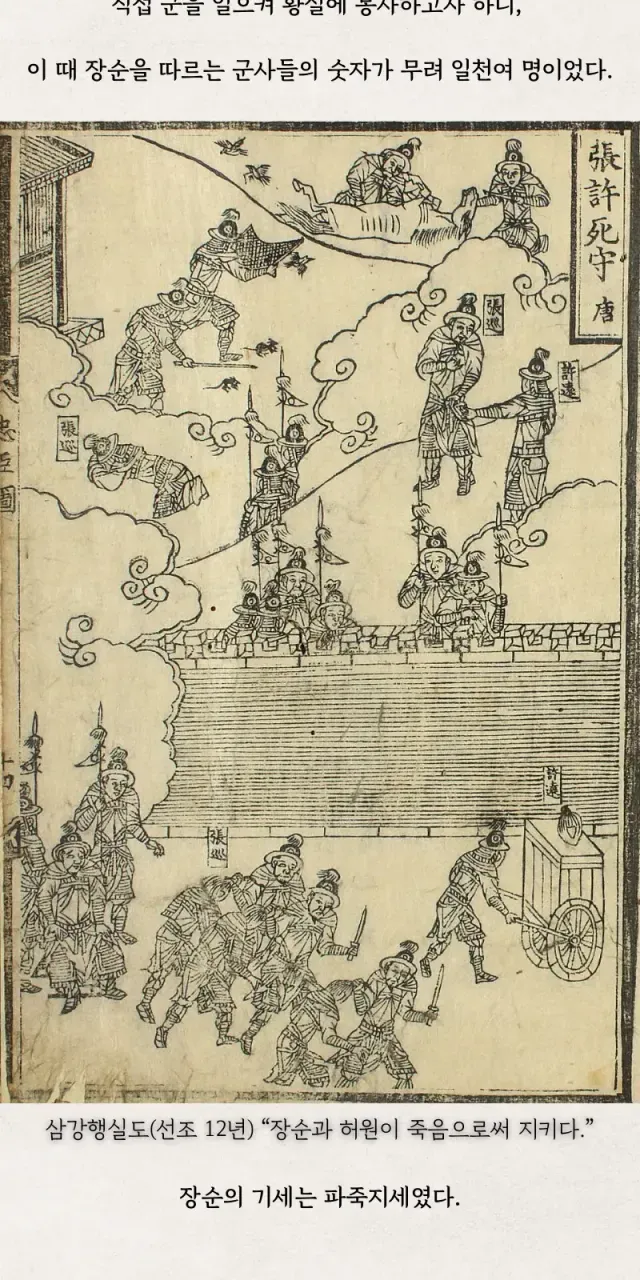 직접 군을 일으켜 황실에 봉사하고자 하니,
이 때 장순을 따르는 군사들의 숫자가 무려 일천여 명이었다.
張許死守 唐
張巡
許遠
張巡
忠臣圖
許遠
張巡
삼강행실도(선조 12년) “장순과 허원이 죽음으로써 지키다.”
장순의 기세는 파죽지세였다.